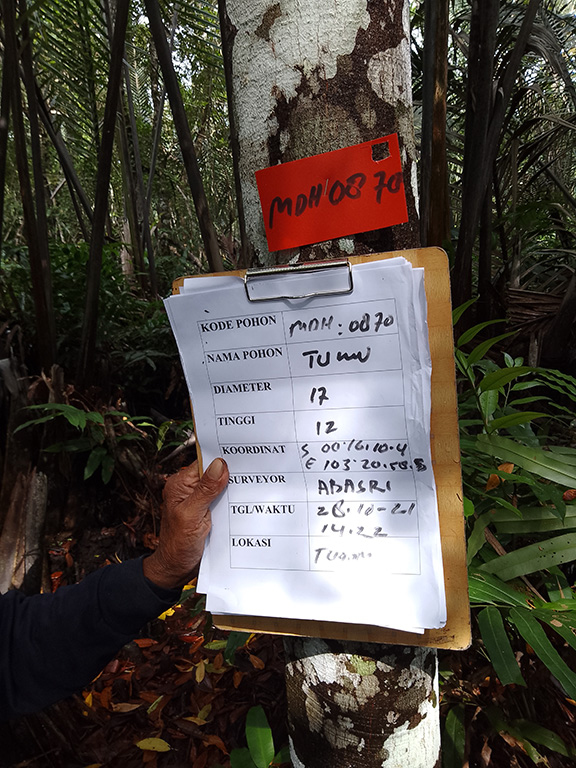 MDH 0870
KODE POHON MDH : 0870
NAMA POHON TUMU
DIAMETER 17
TINGGI 12
KOORDINAT S 00.16.10.4
E 103.20.58.5
SURVEYOR ABASRI
TGL/WAKTU 28-10-21
14.22
LOKASI